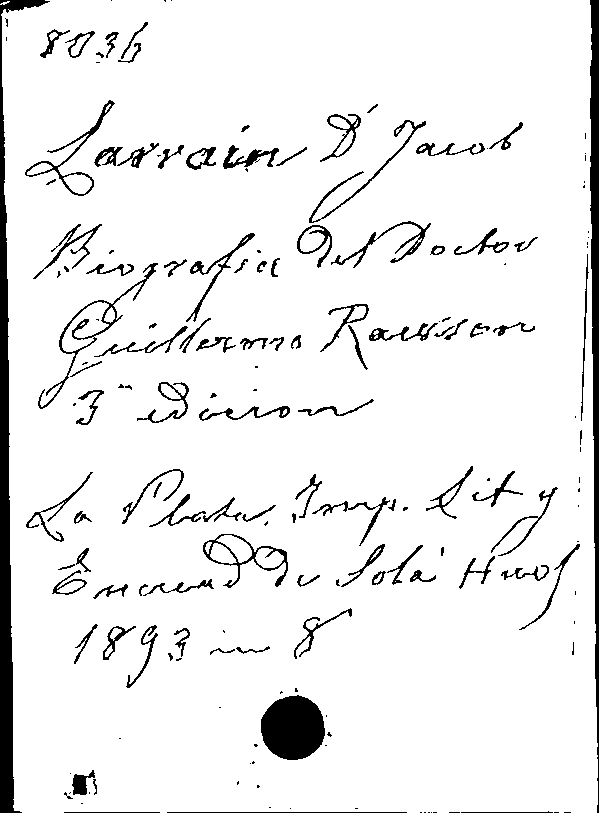 8036
Larrain Dr Jacob
Biografia del Doctor
Guillermo Rawson
3a edicion
La Plata. Imp. Lit y
Encuad de Solá Hnos
1893 in 8